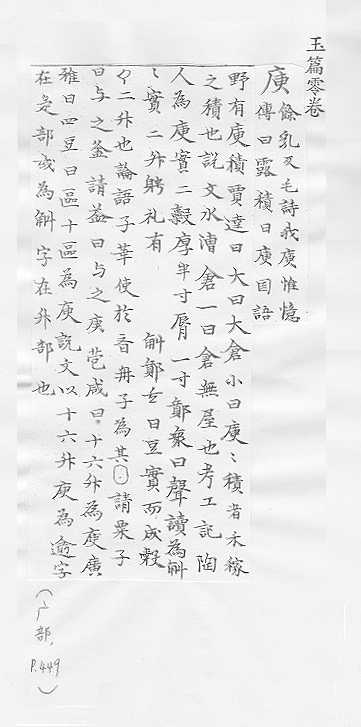 玉篇零卷
庾 餘乳反毛詩我庾惟憶
傳曰露積曰庾国語
野有庾積賈逵曰大曰大倉小曰庾〻積者禾稼
之積也説文水漕倉一曰倉無屋也考工記陶
人為庾實二觳厚半寸脣一寸鄭衆曰聲讀為斞
〻實二升聘礼有斞鄭玄曰豆實而成觳
〻二升也論語子華使於斉冉子為其請粟子
曰与之釜請益曰与之庾苞咸曰十六升為庾廣
雅曰四豆曰區十區為庾説文以十六升庾為逾字
在辵部或為斞字在升部也
(广部, P.449)